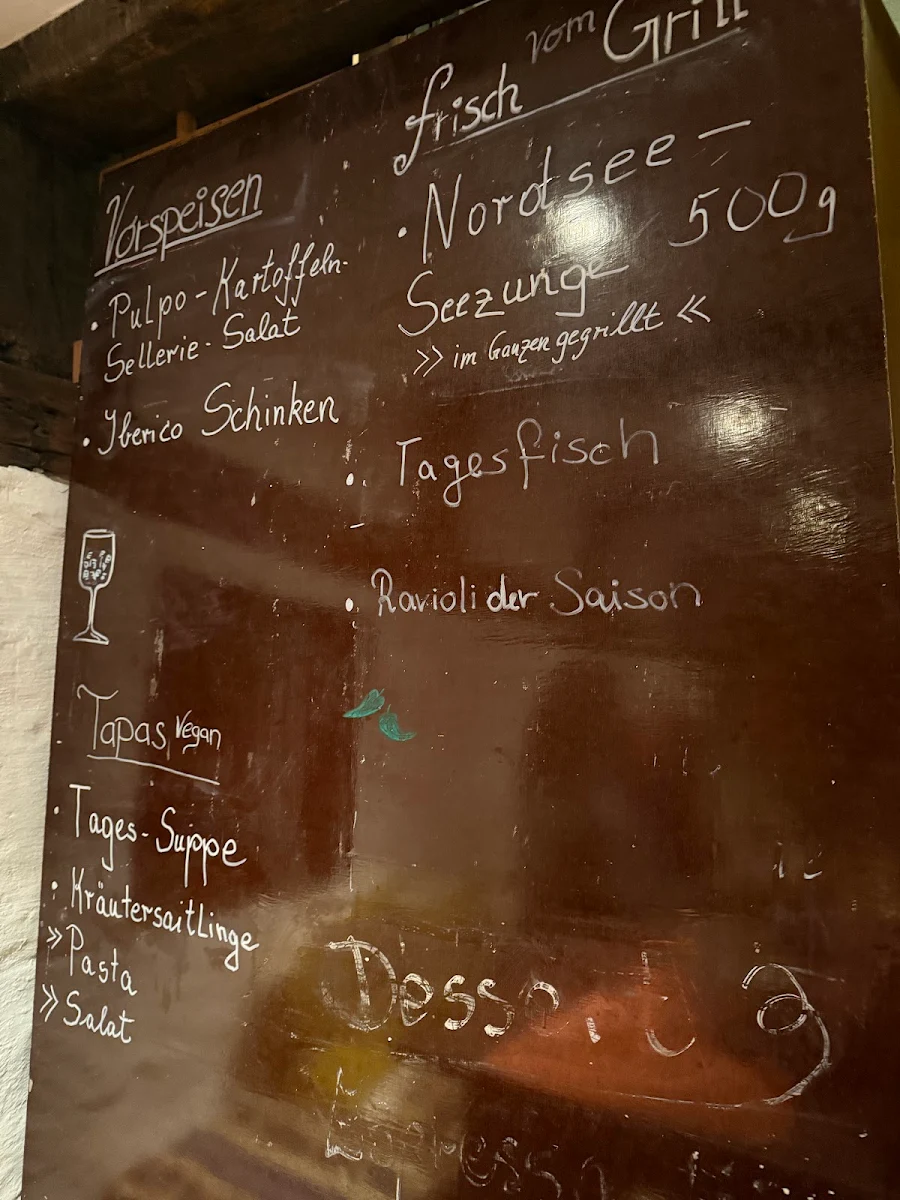 Vorspeisen
• Pulpo-Kartoffeln-
Sellerie-Salat
• Iberico Schinken
Tapas, Vegan
• Tages-Suppe
• Kräutersaitlinge
» Pasta
» Salat
frisch vom Grill
• Nordsee-
Seezunge 500g
» im Ganzen gegrillt «
• Tagesfisch
• Ravioli der Saison